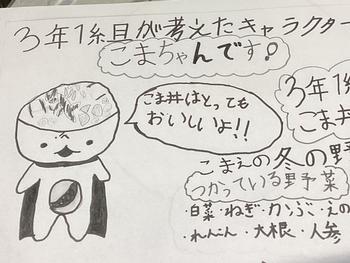 3年1組目が考えたキャラクター
こまちゃんです!
ごま丼はとっても
おいしいよ!!
3年1
ごま丼
こまえの冬の野
つかっている野菜
・白菜・ねぎ・かぶ・えの
・れんこん・大根・人参